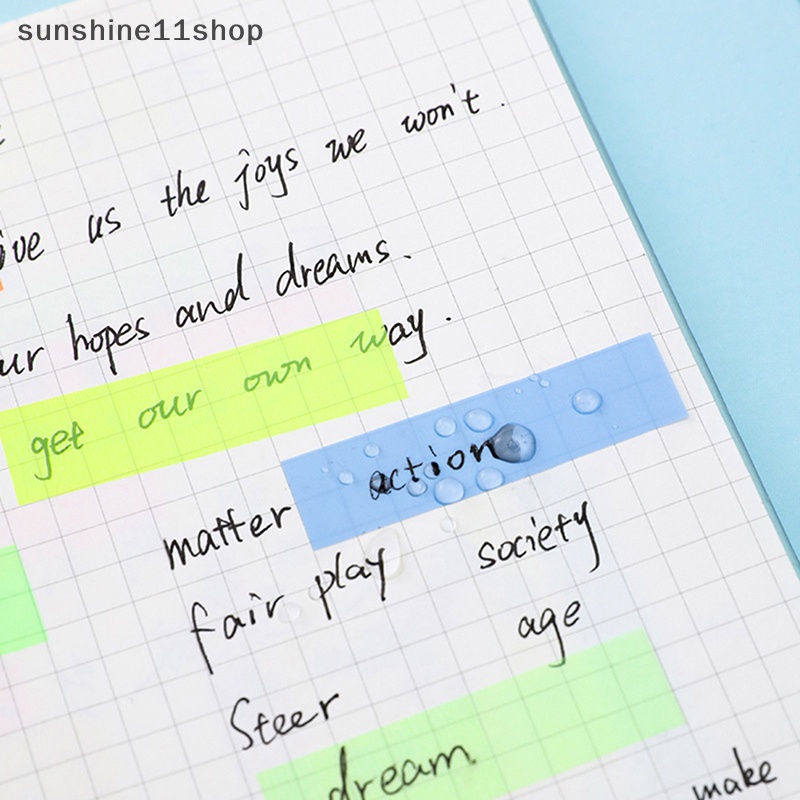 sunshine11shop
us the joys we won't.
hopes and dreams.
get our own way.
matter action
fair play society
age
Steer
dream
make